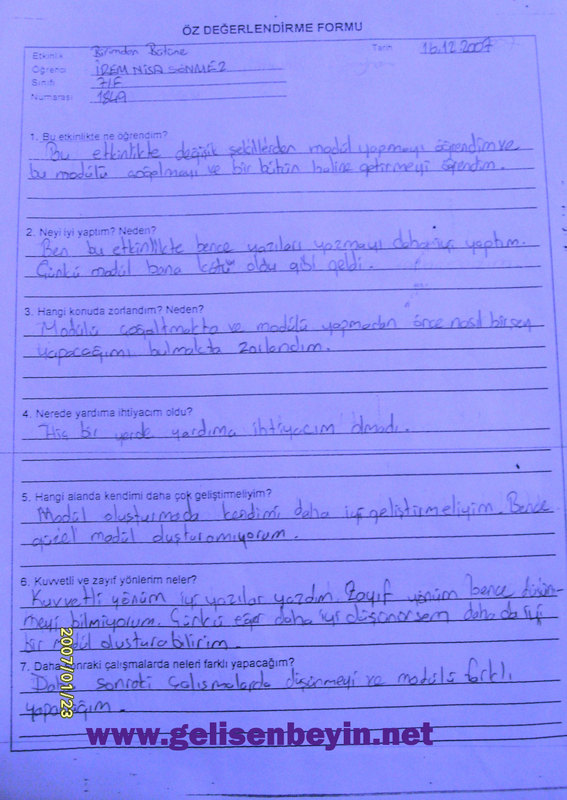 ÖZ DEĞERLENDİRME FORMU
Etkinlik Birimden Bütüne Tarih 16.12.2007
Öğrenci İREM NİSA SÖNMEZ
Sınıfı 7/F
Numarası 1849
1. Bu etkinlikte ne öğrendim?
Bu etkinlikte değişik şekillerden modül yapmayı öğrendim ve
bu modülü çoğalmayı ve bir bütün haline getirmeyi öğrendim.
2. Neyi iyi yaptım? Neden?
Ben bu etkinlikte bence yazıları yazmayı daha iyi yaptım.
Çünkü modül bana kötü oldu gibi geldi.
3. Hangi konuda zorlandım? Neden?
Modülü çoğaltmakta ve modülü yapmadan önce nasıl bir şey
yapacağımı bulmakta zorlandım.
4. Nerede yardıma ihtiyacım oldu?
Hiç bir yerde yardıma ihtiyacım olmadı.
5. Hangi alanda kendimi daha çok geliştirmeliyim?
Modül oluşturmada kendimi daha iyi geliştirmeliyim. Bence
güzel modül oluşturamıyorum.
6. Kuvvetli ve zayıf yönlerim neler?
Kuvvetli yönüm iyi yazılar yazdım. Zayıf yönüm bence düşün-
meyi bilmiyorum. Çünkü eğer daha iyi düşünürsem daha da iyi
bir modül oluşturabilirim.
7. Daha sonraki çalışmalarda neleri farklı yapacağım?
Daha sonraki çalışmalarda düşünmeyi ve modülü farklı
yapacağım.
2007/01/23
www.gelisenbeyin.net